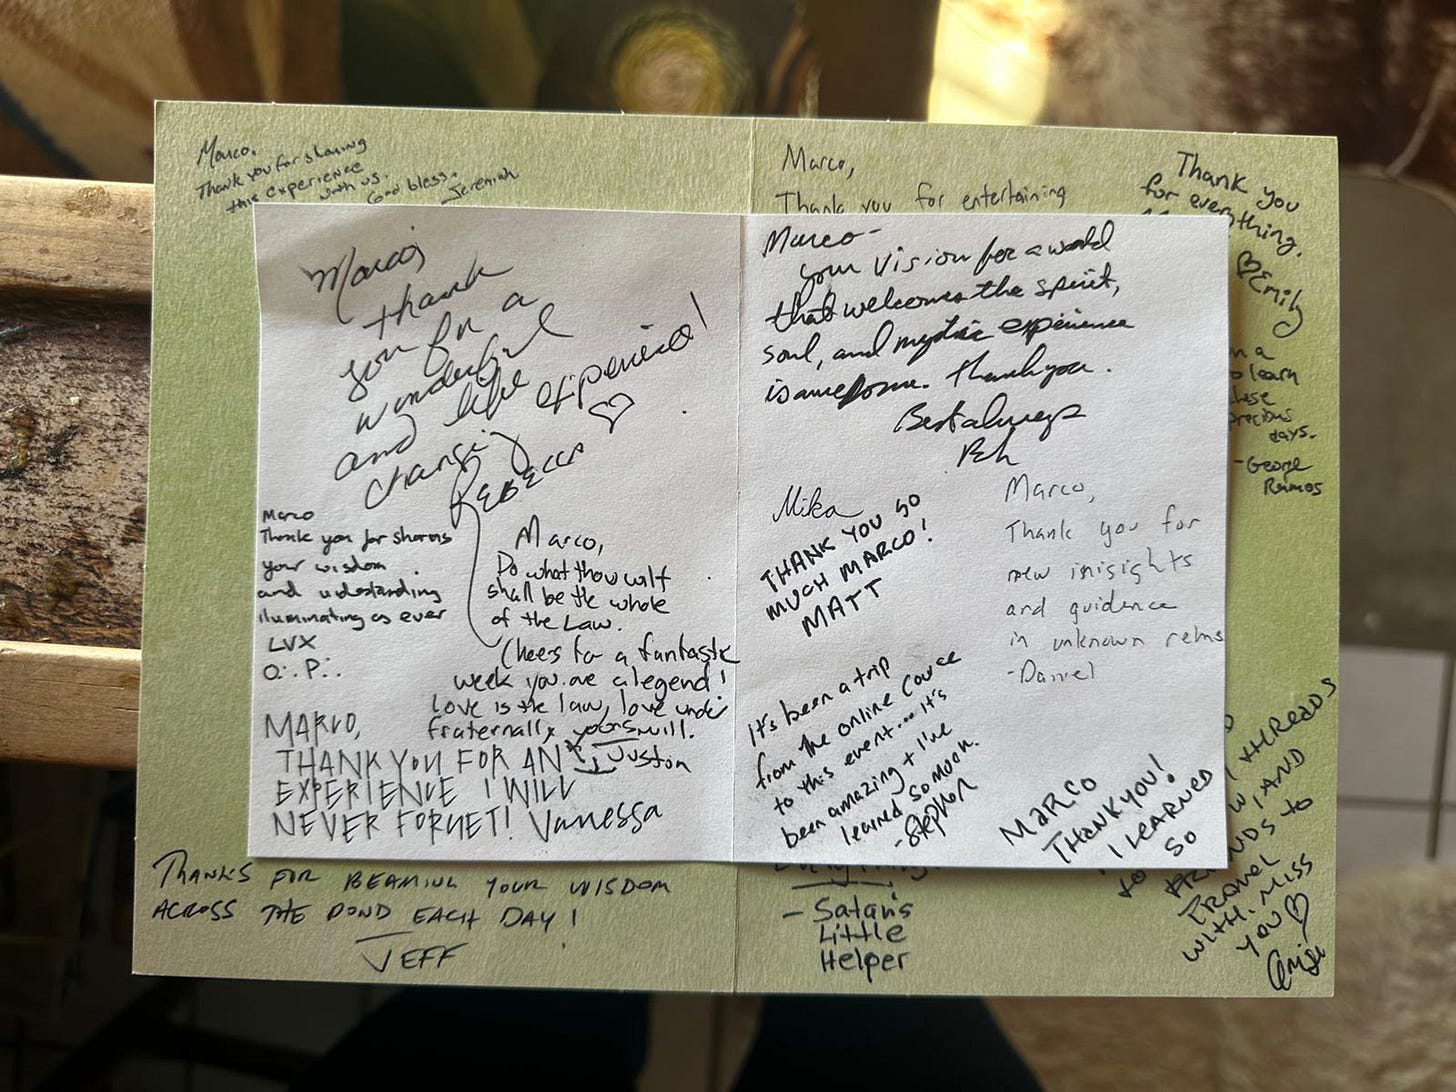 Marco,
Thank you for sharing
this experience
with us.
God bless.
Jeremiah
Marco,
Thank you for entertaining
Thank you
for everything.
♡Emily
learn
these
precious
days.
-George
Ramos
Marco,
thank
you for a
wonderful
and life
changing experience!
♡
REBECCA
Marco
Thank you for sharing
your wisdom
and understanding
iluminating as ever
LVX
O∴P∴
Marco,
Do what thou wilt
shall be the whole
of the Law.
Cheers for a fantastic
week you are a legend!
Love is the law, love under
will.
fraternally yours
Juston
MARCO,
THANK YOU FOR AN
EXPERIENCE I WILL
NEVER FORGET! Vanessa
Marco-
your vision for a world
that welcomes the spirit,
soul, and mystic experience
is awesome. Thank you.
Best always
Mika
THANK YOU SO
MUCH MARCO!
MATT
Marco,
Thank you for
new inisights
and guidence
in unknown relms
-Daniel
It's been a trip
from the online cource
to this event... it's
been amazing + I've
learned so much.
-Stephon
MARCO
THANK YOU!
I LEARNED
SO
THREADS
TO
AND
FRIENDS to
TRAVEL
WITH. MISS
YOU ♡
THANKS FOR BEAMING YOUR WISDOM
ACROSS THE POND EACH DAY!
JEFF
- Satan's
Little
Helper